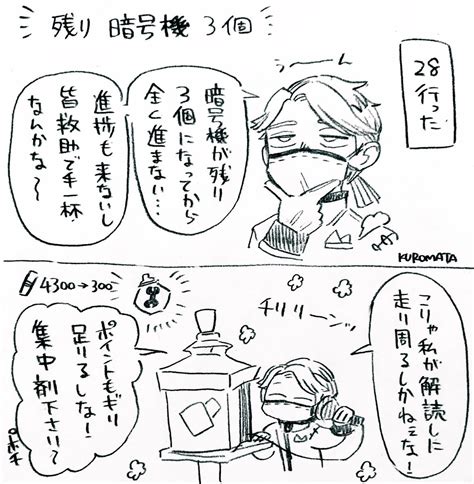 残り 暗号機 3個
28行った
うーーん
暗号機が残り
3個になってから
全く進まない…
進捗も来ないし
皆救助で手一杯
なんかな〜
KUROMATA
4300→300
こりゃ私が解読しに
走り周るしかねぇな!
チリリーン
ポイントもギリ
足りるしな!
集中剤下さい〜
ポチ